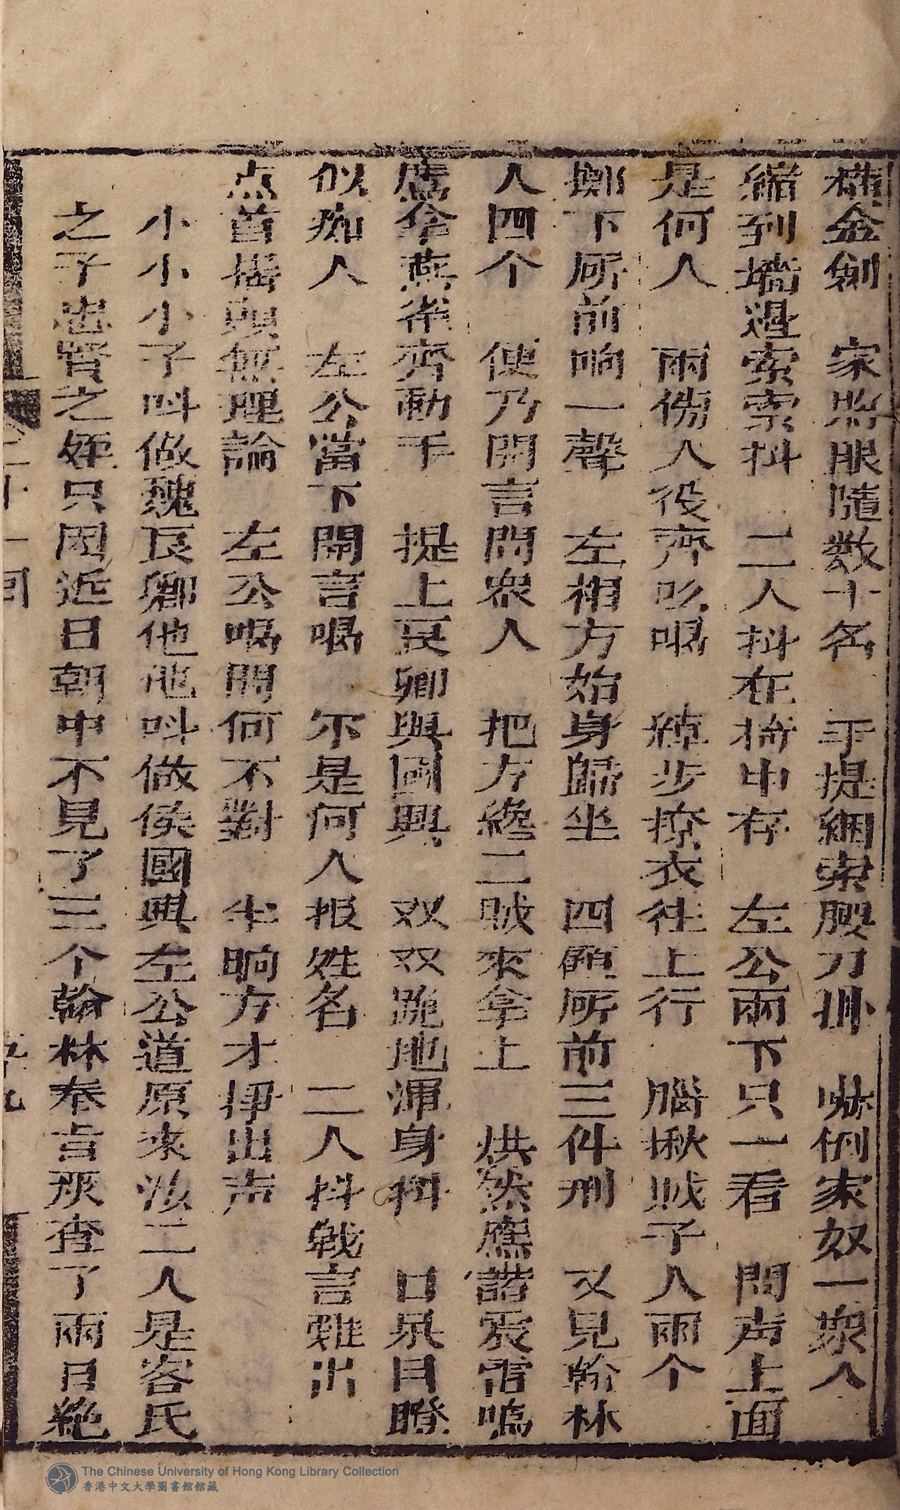 橫金劍　家將眼隨数十名　手提綑索腰刀掛　嚇倒家奴一衆人
縮到墻邉索索抖　二人抖在椅中存　左公兩下只一看　問声上面
是何人　兩傍人役齊吆喝　　步撩衣往上行　腦揪賊子人兩个
擲下所前响一聲　左相方始身歸坐　四顧所前三件刑　又見翰林
人四个　便乃開言問衆人　把方纔二賊來拿上　烘然鷹諧震雷鳴
鷹拿燕雀齊動手　提上良卿與國興　双双跪地渾身抖　口呆目瞪
似痴人　左公當下開言喝　尔是何人报姓名　二人抖戰言難出
点首揺頭無理論　左公喝問何不對　半晌方才挣出声
小小小子呌做魏良卿他他呌做侯國興左公道原來汝二人是客氏
之子忠賢之姪只因近日朝中不見了三个翰林奉旨严查了兩日絶
十一回
五九
The Chinese University of Hong Kong Library Collection
香港中文大學圖書館館藏